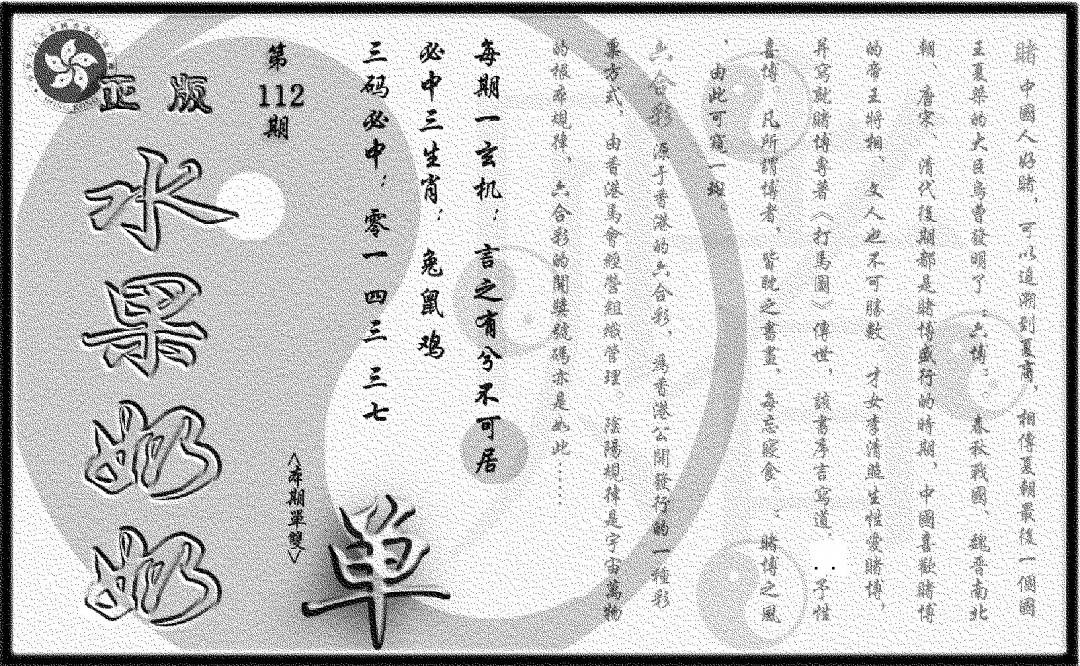 賭 中國人好賭，可以追溯到夏商，相傳夏朝最後一個國
王夏桀的大臣烏曹發明了；六博；春秋戰國、魏晉南北
朝、唐宋、清代後期都是賭博盛行的時期，中國喜歡賭博
的帝王將相、文人也不可勝數 才女李清照生性愛賭博，
并寫就賭博專著〈打馬圖〉傳世，該書序言寫道：予性
喜博，凡所謂博者，皆耽之晝晝，每忘寢食 ：賭博之風
，由此可窺一斑。
六合彩 源于香港的六合彩，為香港公開發行的一種彩
票方式，由香港馬會經營組織管理。陰陽規律是宇宙萬物
的根本規律，六合彩的開獎號碼亦是如此……
每期一玄机：言之有兮不可居
必中三生肖：兔鼠鸡
三码必中：零一 四三 三七
第
112
期
〈本期單雙〉
单
正版
水果奶奶